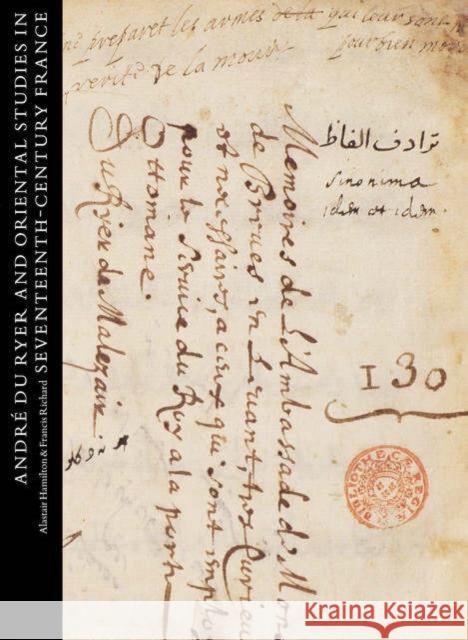 ANDRÉ DU RYER AND ORIENTAL STUDIES IN
SEVENTEENTH-CENTURY FRANCE
Alastair Hamilton & Francis Richard
preparet les armes de la qui leur sont
verité de la mour pour bien
ترادف الفاظ
sinonima
idem et idem
130
BIBLIOTHECÆ REGIÆ
Memoires de L'Ambassade de Mons
de Breves en Levant, tres Curieux
et necessaires, a ceux qui sont employ
pour le Service du Roy a la porte
Ottomane.
Du Ryer de Malezair